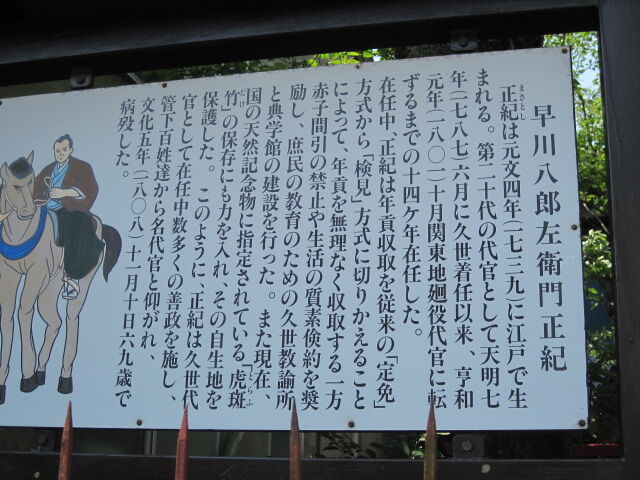 早川八郎左衛門正紀
まさとし
正紀は元文四年(一七三九)に江戸で生
まれる。第二十代の代官として天明七
年(一七八七)六月に久世着任以来、亨和
元年(一八〇一)十月関東地廻役代官に転
ずるまでの十四ケ年在任した。
在任中、正紀は年貢収取を従来の「定免」
方式から「検見」方式に切りかえること
によって、年貢を無理なく収取する一方
赤子間引の禁止や生活の質素倹約を奨
励し、庶民の教育のための久世教諭所
と典学館の建設を行った。また現在、
国の天然記念物に指定されている「虎斑
竹」の保存にも力を入れ、その自生地を
保護した。このように、正紀は久世代
官として在任中数多くの善政を施し、
管下百姓達から名代官と仰がれ、
文化五年(一八〇八)十一月十日六九歳で
病殁した。